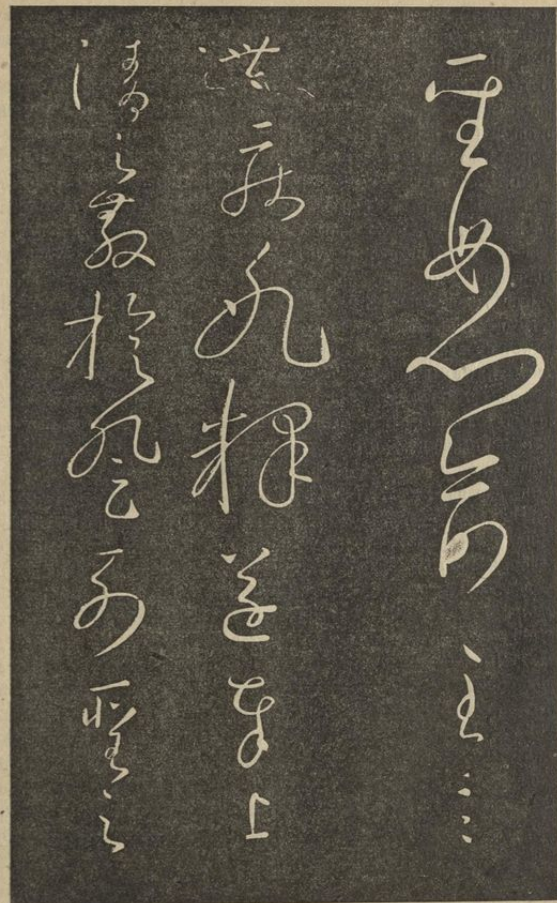 聖母心俞至言
世疾冰釋遂奉上
清之教旋登列聖之